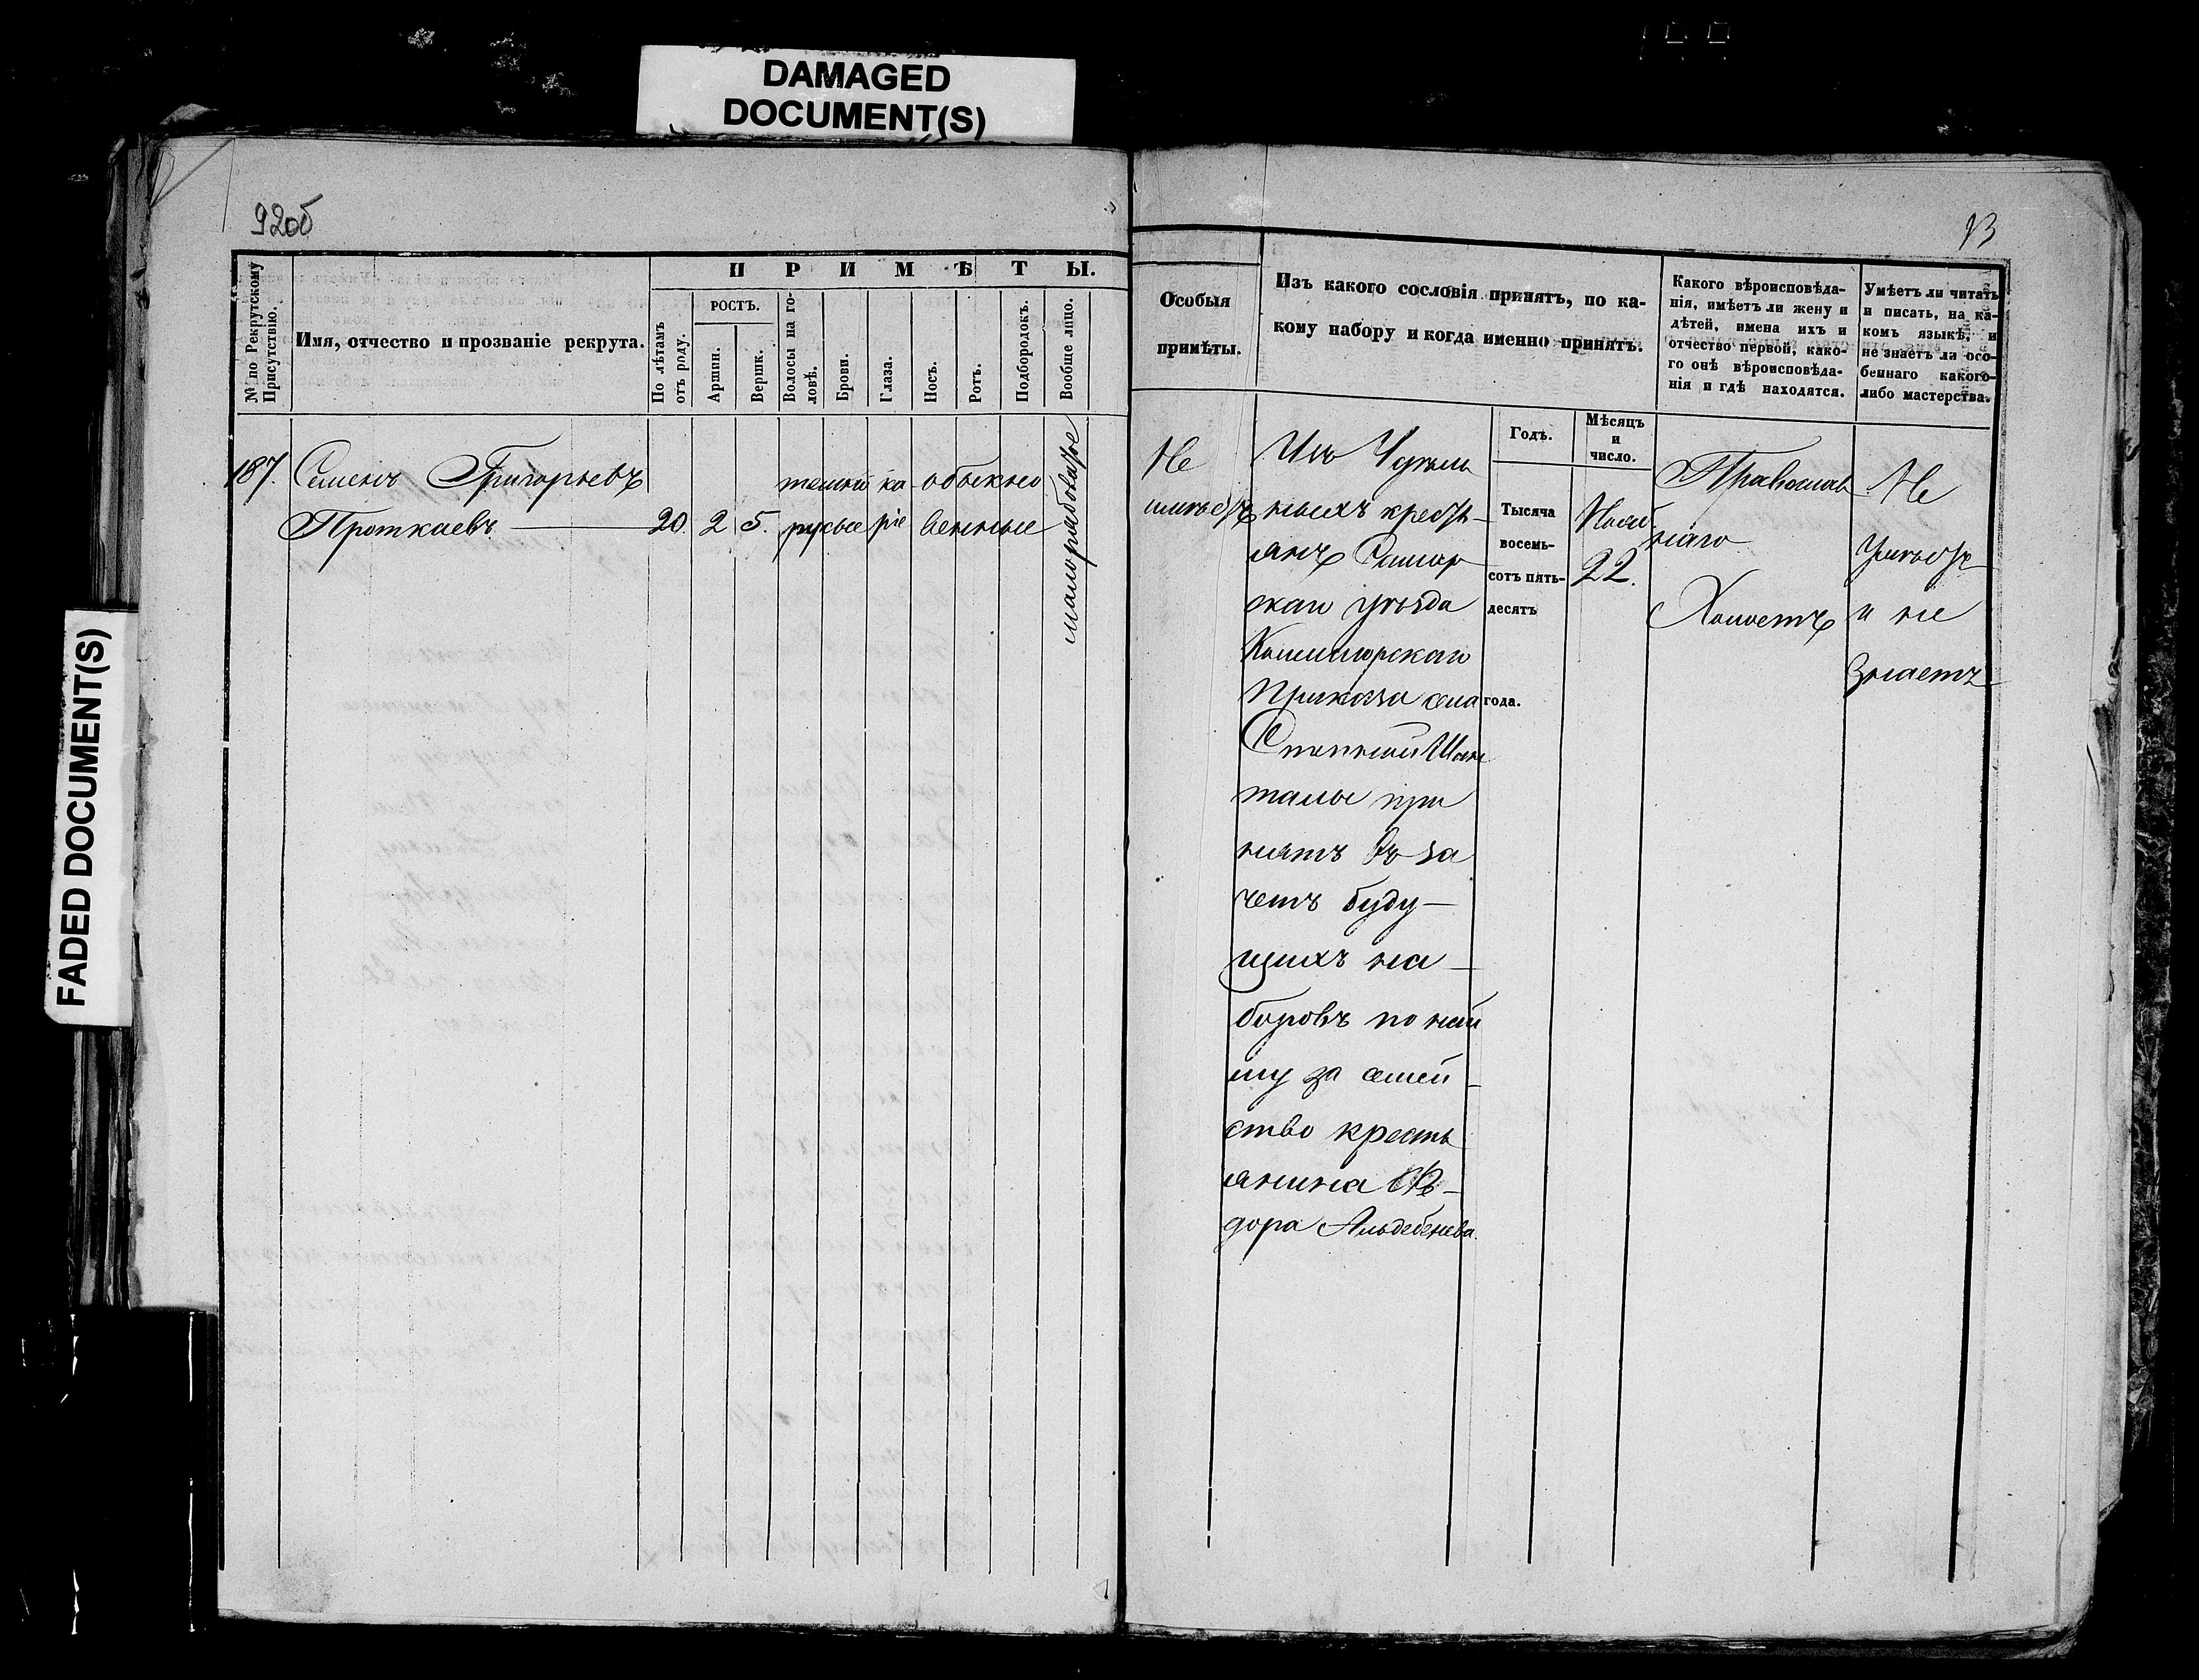 DAMAGED
DOCUMENT(S)
FADED DOCUMENT(S)
92об
№ по Рекрутскому
Присутствію.
Имя, отчество и прозваніе рекрута.
ПРИМѢТЫ.
По лѣтамъ
отъ роду.
РОСТЪ.
Аршин.
Вершк.
Волосы на го-
ловѣ.
Брови.
Глаза.
Носъ.
Ротъ.
Подбородокъ.
Вообще лицо.
187. Семенъ Григорьевъ
Проткаевъ 20 2 5.
темно
русые
ка
ріе
обыкно
венные
малорябоватое
93
Особыя
примѣты.
Изъ какого сословія принятъ, по ка-
кому набору и когда именно принятъ.
Какого вѣроисповѣда-
нія, имѣетъ ли жену и
дѣтей, имена ихъ и
отчество первой, како-
го онѣ вѣроисповѣда-
нія и гдѣ находятся.
Умѣетъ ли читать
и писать, на ка-
комъ языкѣ, и
не знаетъ ли осо-
беннаго какого-
либо мастерства.
Годъ.
Мѣсяцъ
и
число.
Не
имѣетъ
Изъ Удѣль
ныхъ кресть-
янъ Самар
скаго уѣзда
Приказа села
Шен
талы при
нятъ въ за
четъ буду-
щихъ на-
боровъ по най
му за семей-
ство кресть
янина Фе-
дора Альдебенева.
Тысяча
восемь-
сотъ пять-
десятъ
года.
Нояб.
22.
Православ
наго
Холостъ
Не
Умѣетъ
и не
Знаетъ